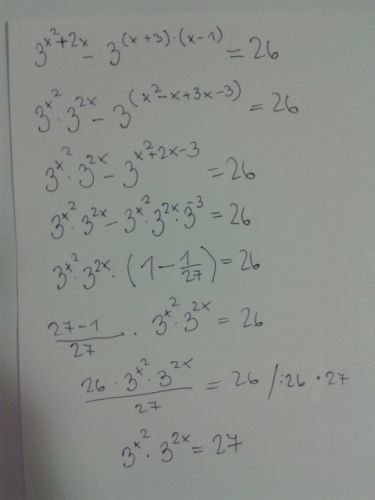 3^{x^2+2x} - 3^{(x+3)·(x-1)} = 26
3^{x^2} · 3^{2x} - 3^{(x^2-x+3x-3)} = 26
3^{x^2} · 3^{2x} - 3^{x^2+2x-3} = 26
3^{x^2} · 3^{2x} - 3^{x^2} · 3^{2x} · 3^{-3} = 26
3^{x^2} · 3^{2x} · (1 - \frac{1}{27}) = 26
\frac{27-1}{27} · 3^{x^2} · 3^{2x} = 26
\frac{26 · 3^{x^2} · 3^{2x}}{27} = 26 /:26 · 27
3^{x^2} · 3^{2x} = 27